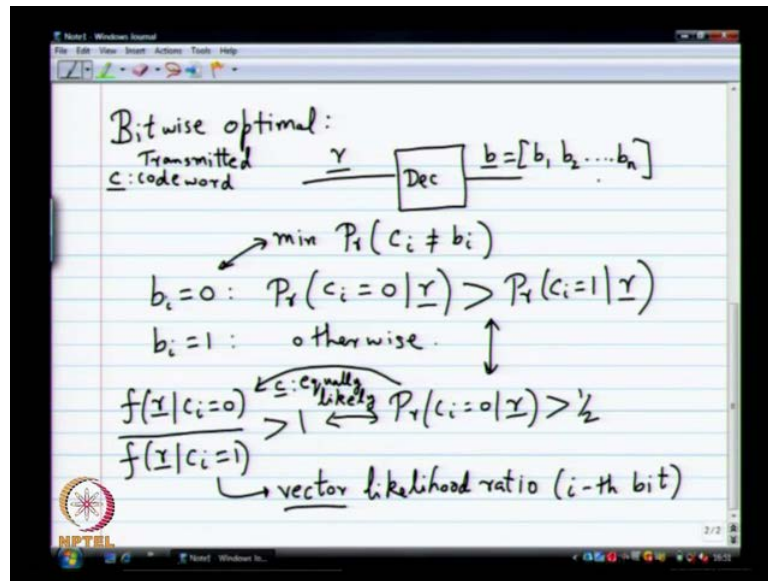 Note1 - Windows Journal
File Edit View Insert Actions Tools Help
Bitwise optimal:
Transmitted
c: codeword
r Dec b = [b₁ b₂ ....bₙ]
min Pr(cᵢ ≠ bᵢ)
bᵢ = 0 : Pr(cᵢ = 0 | r) > Pr(cᵢ = 1 | r)
bᵢ = 1 : otherwise.
c: equally likely
f(r | cᵢ = 0) / f(r | cᵢ = 1) > 1 ↔ Pr(cᵢ = 0 | r) > 1/2
vector likelihood ratio (i-th bit)
2/2
NPTEL
Note1 - Windows Jo...
16:51